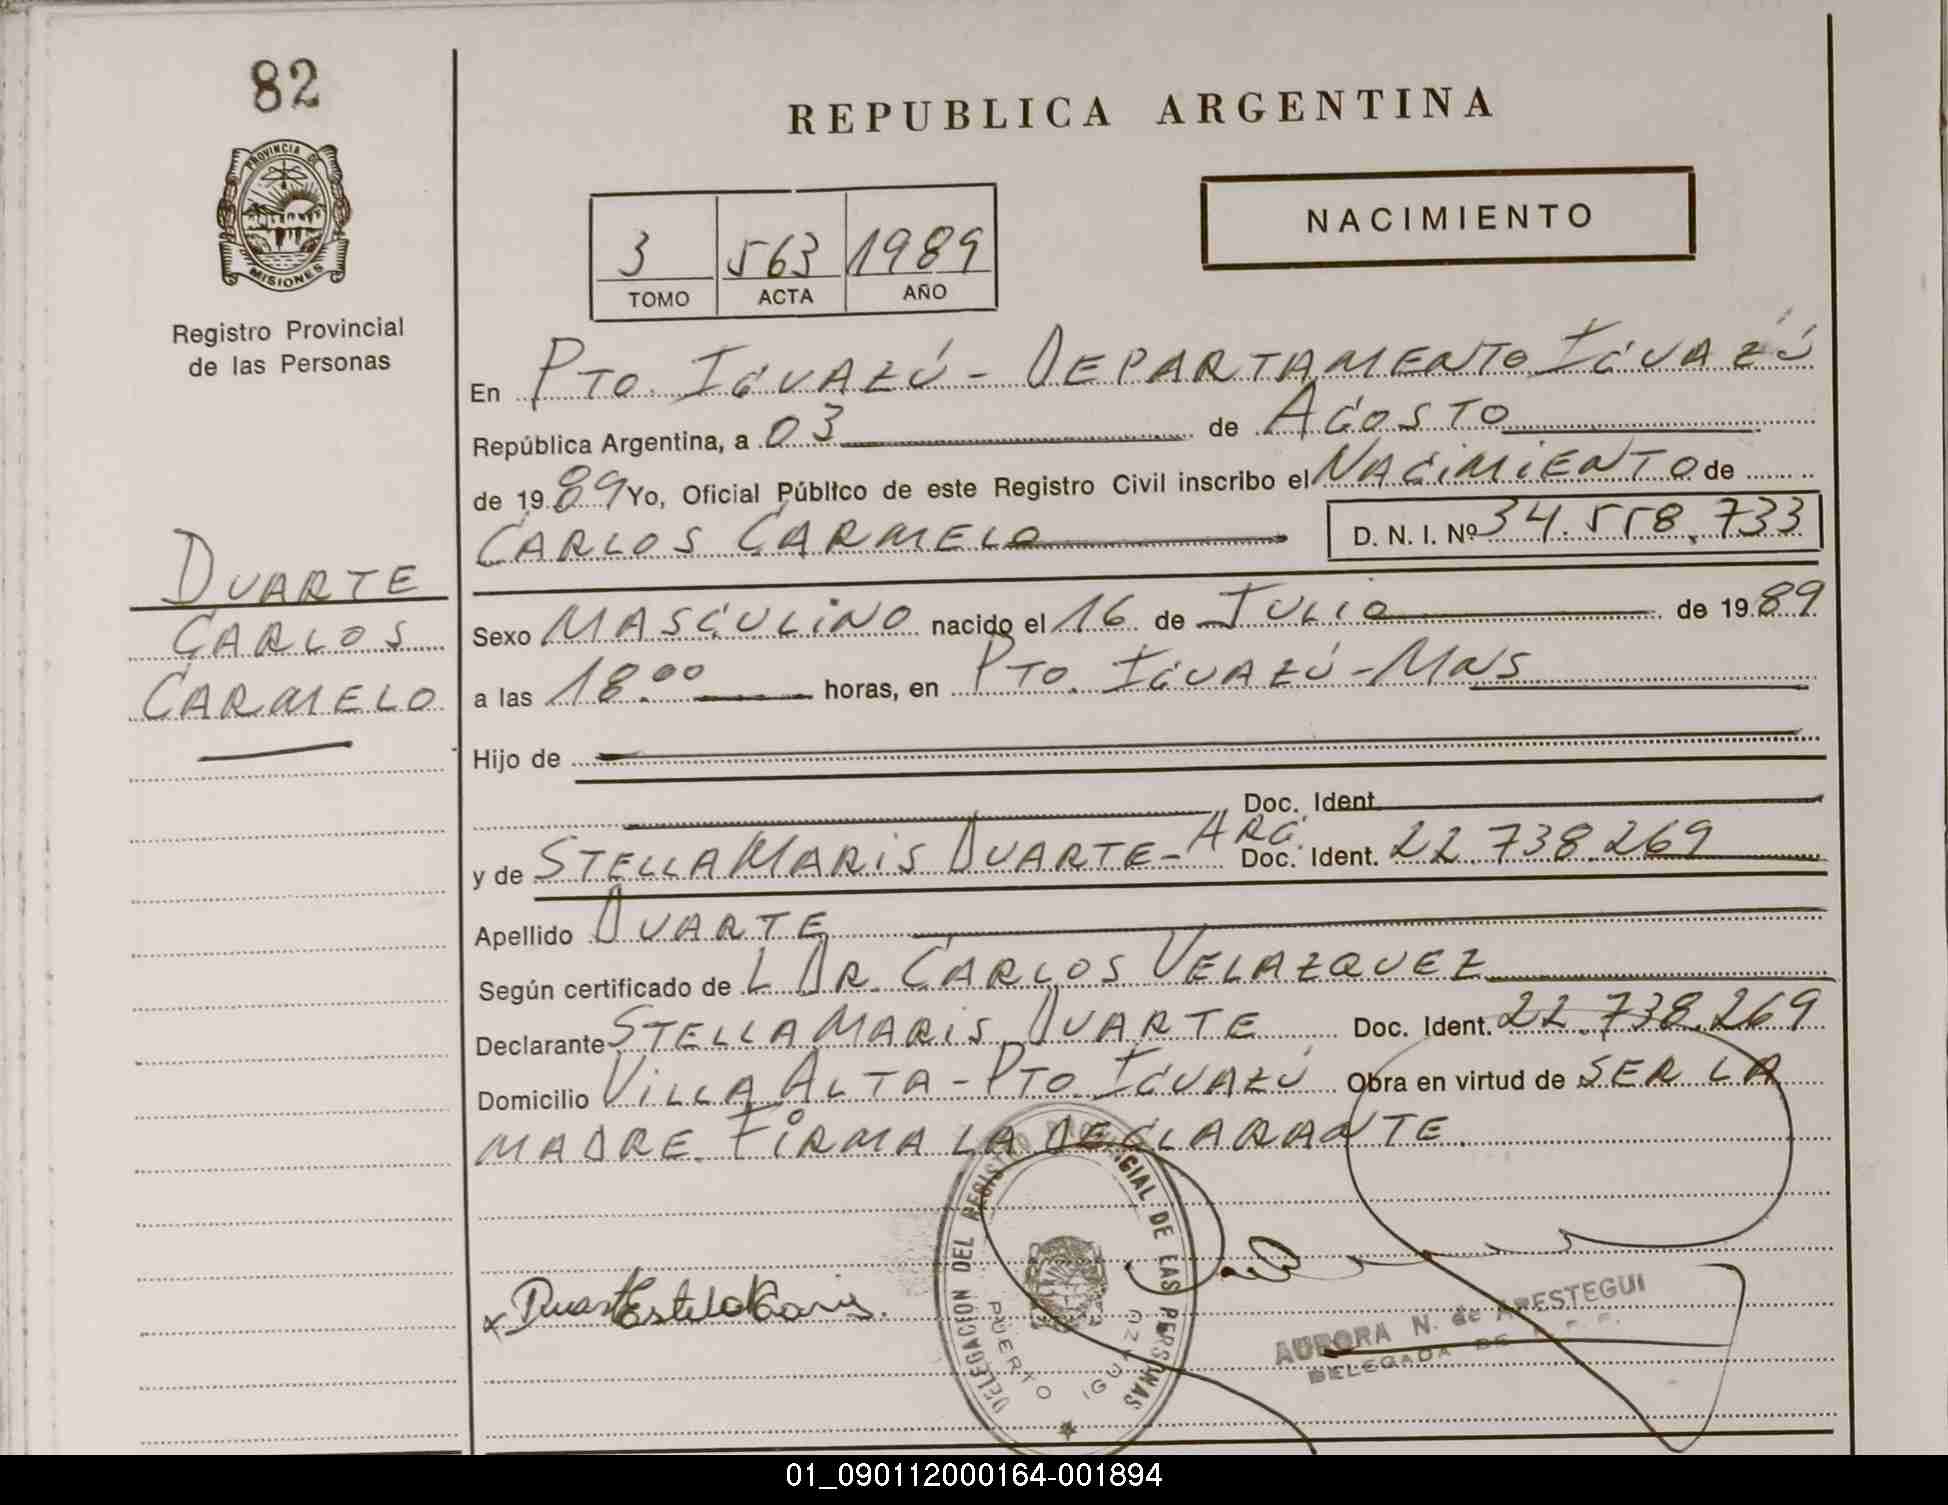 82
PROVINCIA DE
MISIONES
Registro Provincial
de las Personas
DUARTE
CARLOS
CARMELO
REPUBLICA ARGENTINA
3 563 1989
TOMO ACTA AÑO
NACIMIENTO
En PTO. IGUAZÚ - DEPARTAMENTO IGUAZÚ
República Argentina, a 03 de AGOSTO
de 1989 Yo, Oficial Público de este Registro Civil inscribo el NACIMIENTO de
CARLOS CARMELO D. N. I. Nº 34.558.733
Sexo MASCULINO nacido el 16 de JULIO de 1989
a las 18.00 horas, en PTO. IGUAZÚ - MNS
Hijo de
Doc. Ident.
y de STELLA MARIS DUARTE - ARG. Doc. Ident. 22.738.269
Apellido DUARTE
Según certificado de L DR. CARLOS VELAZQUEZ
Declarante STELLA MARIS DUARTE Doc. Ident. 22.738.269
Domicilio VILLA ALTA - PTO. IGUAZÚ Obra en virtud de SER LA
MADRE. FIRMA LA DECLARANTE.
DELEGACION DEL REGISTRO PROVINCIAL DE LAS PERSONAS
PUERTO IGUAZU
x Duarte Stela Maris.
AURORA N. de ARESTEGUI
DELEGADA DE
01_090112000164-001894